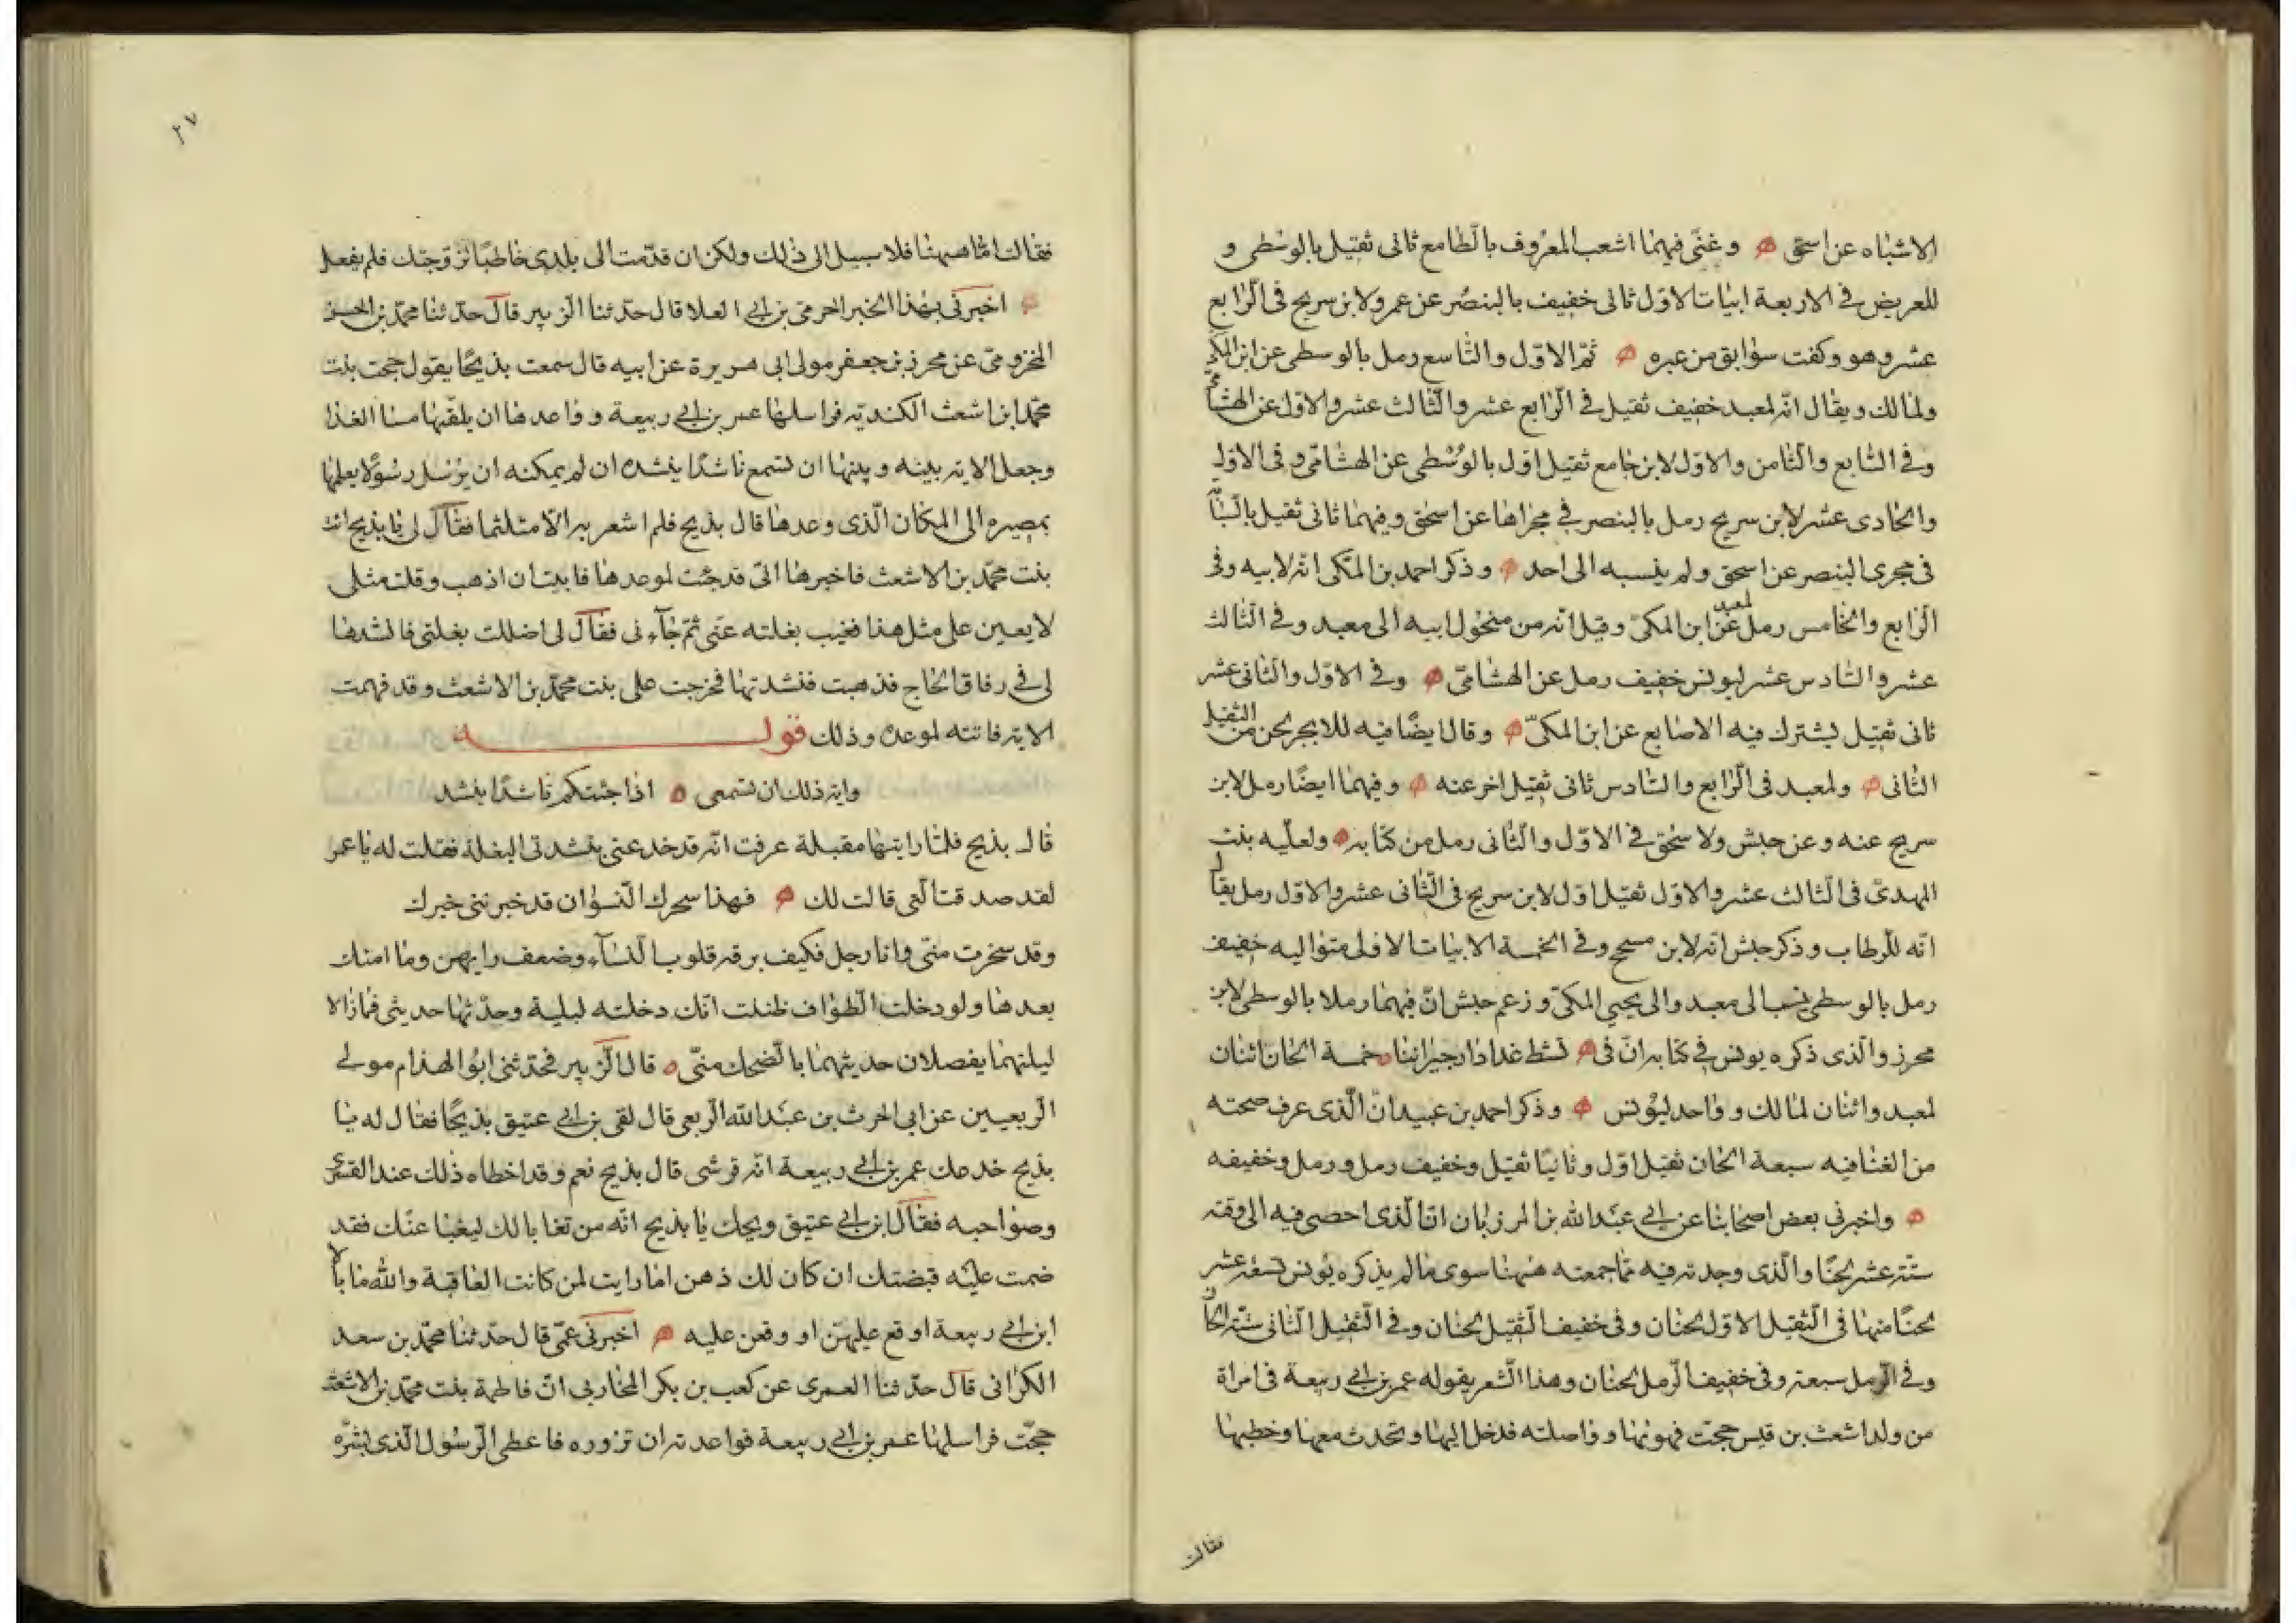 الاشباه عن اسحق وغنى فيهما اشعب المعروف بالطامع ثانى ثقيل بالوسطى و
للعريض فى الاربعة ابيات الاول ثانى خفيف بالبنصر عن عمر ولابن سريج فى الرابع
عشر وهو وكفت سوابق من عبره ثم الاول والتاسع رمل بالوسطى عن ابن المكى
ولمالك ويقال انه لمعبد خفيف ثقيل فى الرابع عشر والثالث عشر والاول عن الهشامى
وفى السابع والثامن والاول لابن جامع ثقيل اول بالوسطى عن الهشامى وفى الاول
والحادى عشر لابن سريج رمل بالبنصر فى مجراها عن اسحق وفيهما ثانى ثقيل بالسبا
فى مجرى البنصر عن اسحق ولم ينسبه الى احد وذكر احمد بن المكى انه لابيه وفى
الرابع والخامس رمل لمعبد عن ابن المكى وقيل انه من منحول ابيه الى معبد وفى الثالث
عشر والسادس عشر ليونس خفيف رمل عن الهشامى وفى الاول والثانى عشر
ثانى ثقيل يشترك فيه الاصابع عن ابن المكى وقال ايضا فيه للابجر لحن من الثقيل
الثانى ولمعبد فى الرابع والسادس ثانى ثقيل اخر عنه وفيهما ايضا رمل لابن
سريج عنه وعن حبش ولاسحق فى الاول والثانى رمل من كتابه ولعليه بنت
المهدى فى الثالث عشر والاول ثقيل اول لابن سريج فى الثانى عشر والاول رمل يقال
انه للرطاب وذكر حبش انه لابن مسحج وفى الخمسة الابيات الاولى متواليه خفيف
رمل بالوسطى ينسب الى معبد والى يحيى المكى وزعم حبش ان فيهما رملا بالوسطى لابن
محرز والذى ذكره يونس فى كتابه ان فى تشط غدا دار جيراننا خمسة الحان اثنان
لمعبد واثنان لمالك وواحد ليونس وذكر احمد بن عبيد ان الذى عرف صحته
من الغنا فيه سبعة الحان ثقيل اول وثانيا ثقيل وخفيف رمل ورمل وخفيفه
واخبرنى بعض اصحابنا عن ابى عبد الله بن المرزبان ان الذى احصى فيه الى وقته
ستة عشر لحنا والذى وجدته فيه مما جمعته ههنا سوى ما لم يذكره يونس تسعة عشر
لحنا منها فى الثقيل الاول لحنان وفى خفيف الثقيل لحنان وفى الثقيل الثانى ستة الحان
وفى الرمل سبعة وفى خفيف الرمل لحنان وهذا الشعر يقوله عمر بن ابى ربيعة فى امراة
من ولد اشعث بن قيس حجت فهويها وواصلته فدخل اليها وتحدث معها وخطبها
فقالت
٢٧
فقالت اما ههنا فلا سبيل الى ذلك ولكن ان قدمت الى بلدى خاطبا تزوجتك فلم يفعل
اخبرنى بهذا الخبر الحرمى بن ابى العلا قال حدثنا الزبير قال حدثنا محمد بن الحسن
المخزومى عن محرز بن جعفر مولى ابى هريرة عن ابيه قال سمعت بذيحا يقول حجت بنت
محمد ابن اشعث الكنديه فراسلها عمر بن ابى ربيعة وواعدها ان يلقيها مسا الغدا
وجعل الايه بينه وبينها ان تسمع ناشدا ينشده ان لم يمكنه ان يرسل رسولا يعلمها
بمصيره الى المكان الذى وعدها قال بذيح فلم اشعر به الا متلثما فقال لى يا بذيح ائت
بنت محمد بن الاشعث فاخبرها انى قد جئت لموعدها فابيت ان اذهب وقلت مثلى
لا يعين على مثل هذا فغيب بغلته عنى ثم جاءنى فقال لى اضللت بغلتى فانشدها
لى فى رفاق الحاج فذهبت فنشدتها فخرجت على بنت محمد بن الاشعث وقد فهمت
الايه فاتته لموعده وذلك قوله
واية ذلك ان تسمعى اذا جئتكم ناشدا ينشد
قال بذيح فلما رايتها مقبلة عرفت انه قد خدعنى بنشدتى البغلة فقلت له يا عمر
لقد صدقت التى قالت لك فهذا سحرك النسوان قد خبرننى خبرك
وقد سخرت منى وانا رجل فكيف برقه قلوب النساء وضعف رايهن وما امنك
بعدها ولو دخلت الطواف ظننت انك دخلته لبلية وحدثها حديثى فمازالا
ليلتهما يفصلان حديثهما بالضحك منى قال الزبير فحدثنى ابو الهذام مولى
الربعيين عن ابى الحرث بن عبد الله الربعى قال لقى بن ابى عتيق بذيحا فقال له يا
بذيح خدعك عمر بن ابى ربيعة انه قرشى قال بذيح نعم وقد اخطاه ذلك عند القسرى
وصواحبه فقال ابن ابى عتيق ويحك يا بذيح انه من تغابا لك ليغبا عنك فقد
ضمت عليه قبضتك ان كان لك ذهن اما رايت لمن كانت العاقبة والله ما بالا
ابن ابى ربيعة اوقع عليهن او وقعن عليه اخبرنى عمى قال حدثنا محمد بن سعد
الكرانى قال حدثنا العمرى عن كعب بن بكر المحاربى ان فاطمة بنت محمد بن الاشعث
حجت فراسلها عمر بن ابى ربيعة فواعدته ان تزوره فاعطى الرسول الذى بشره